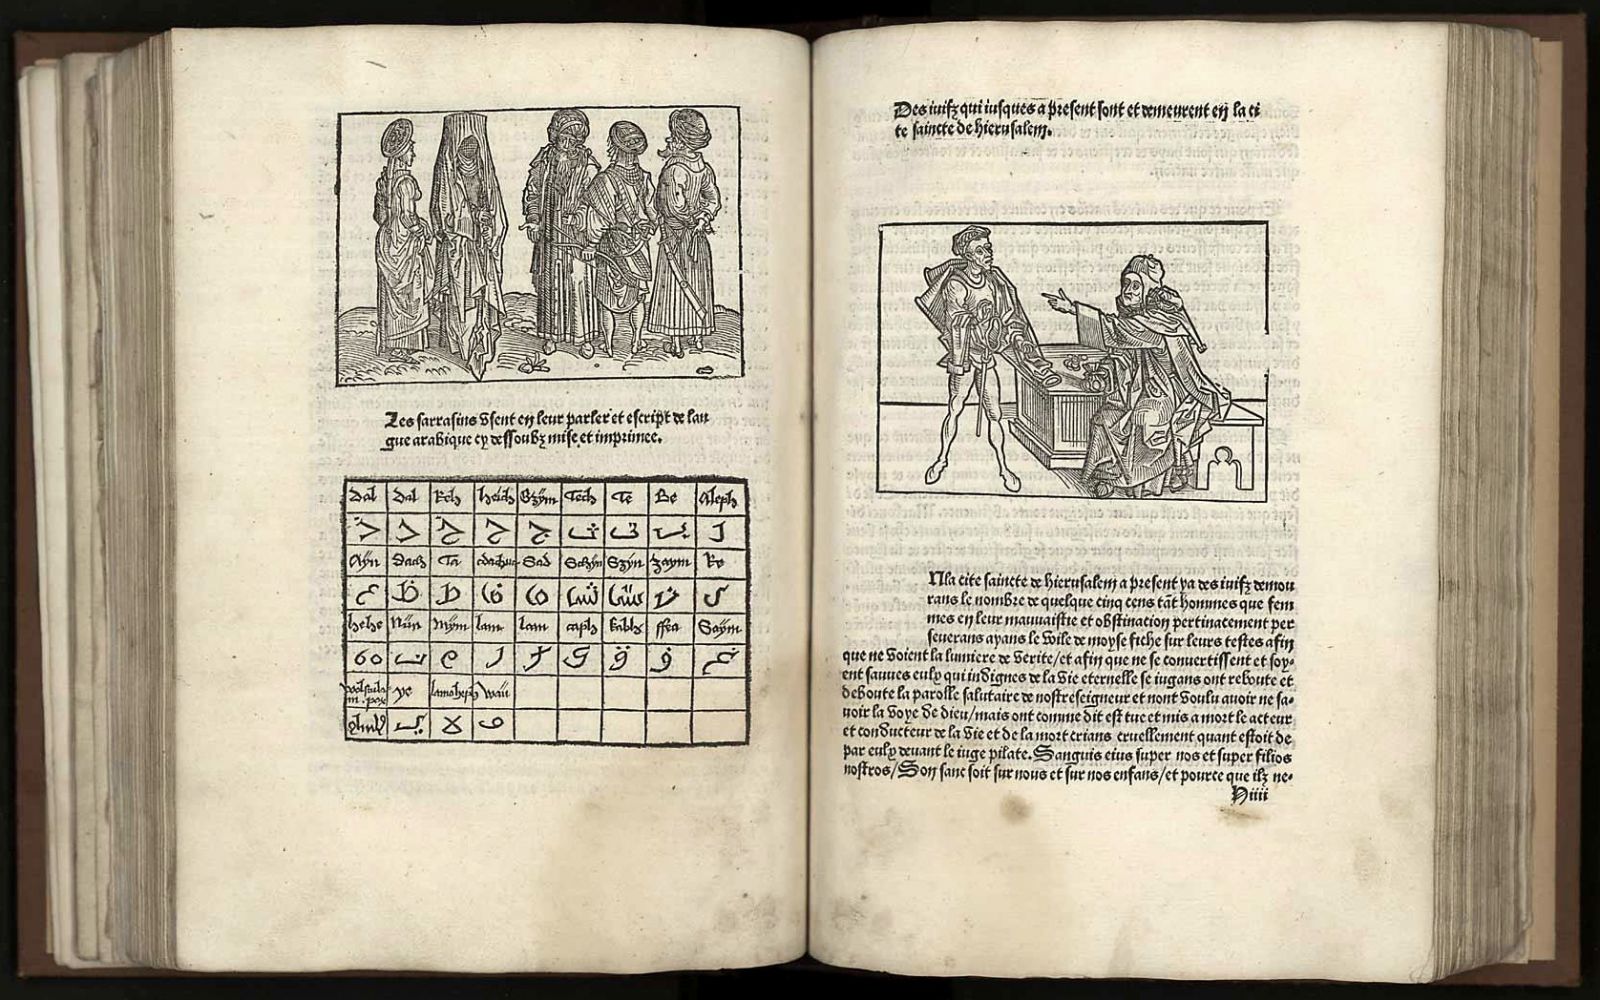 Les sarrasins vsent en leur parler et escript de lan
gue arabique cy dessoubz mise et imprimee.
Dal Dal Kch heich Gzÿm Tech Te Be Aleph
Aÿn Dach Ta Sad Schÿn Szÿn zaym Re
hehe Nün Mÿm lam lam caph kabh ffea Saÿm
ye lamaleph Waü
Des iuifz qui iusques a present sont et demeurent en la ci
te saincte de hierusalem.
Nla cite saincte de hierusalem a present ya des iuifz demou
rans le nombre de quelque cinq cens tāt hommes que fem
mes en leur mauuaistie et obstination pertinacement per
seuerans ayans le voile de moyse fiche sur leurs testes afin
que ne voient la lumiere de verite/et afin que ne se conuertissent et soy-
ent sauues eulx qui indignes de la vie eternelle se iugans ont reboute et
deboute la parolle salutaire de nostreseigneur et nont voulu auoir ne sa-
uoir la voye de dieu/mais ont comme dit est tue et mis a mort le acteur
et conducteur de la vie et de la mort crians cruellement quant estoit de
par eulx deuant le iuge pilate. Sanguis eius super nos et super filios
nostros/Son sanc soit sur nous et sur nos enfans/et pource que ilz ne-
Niiii